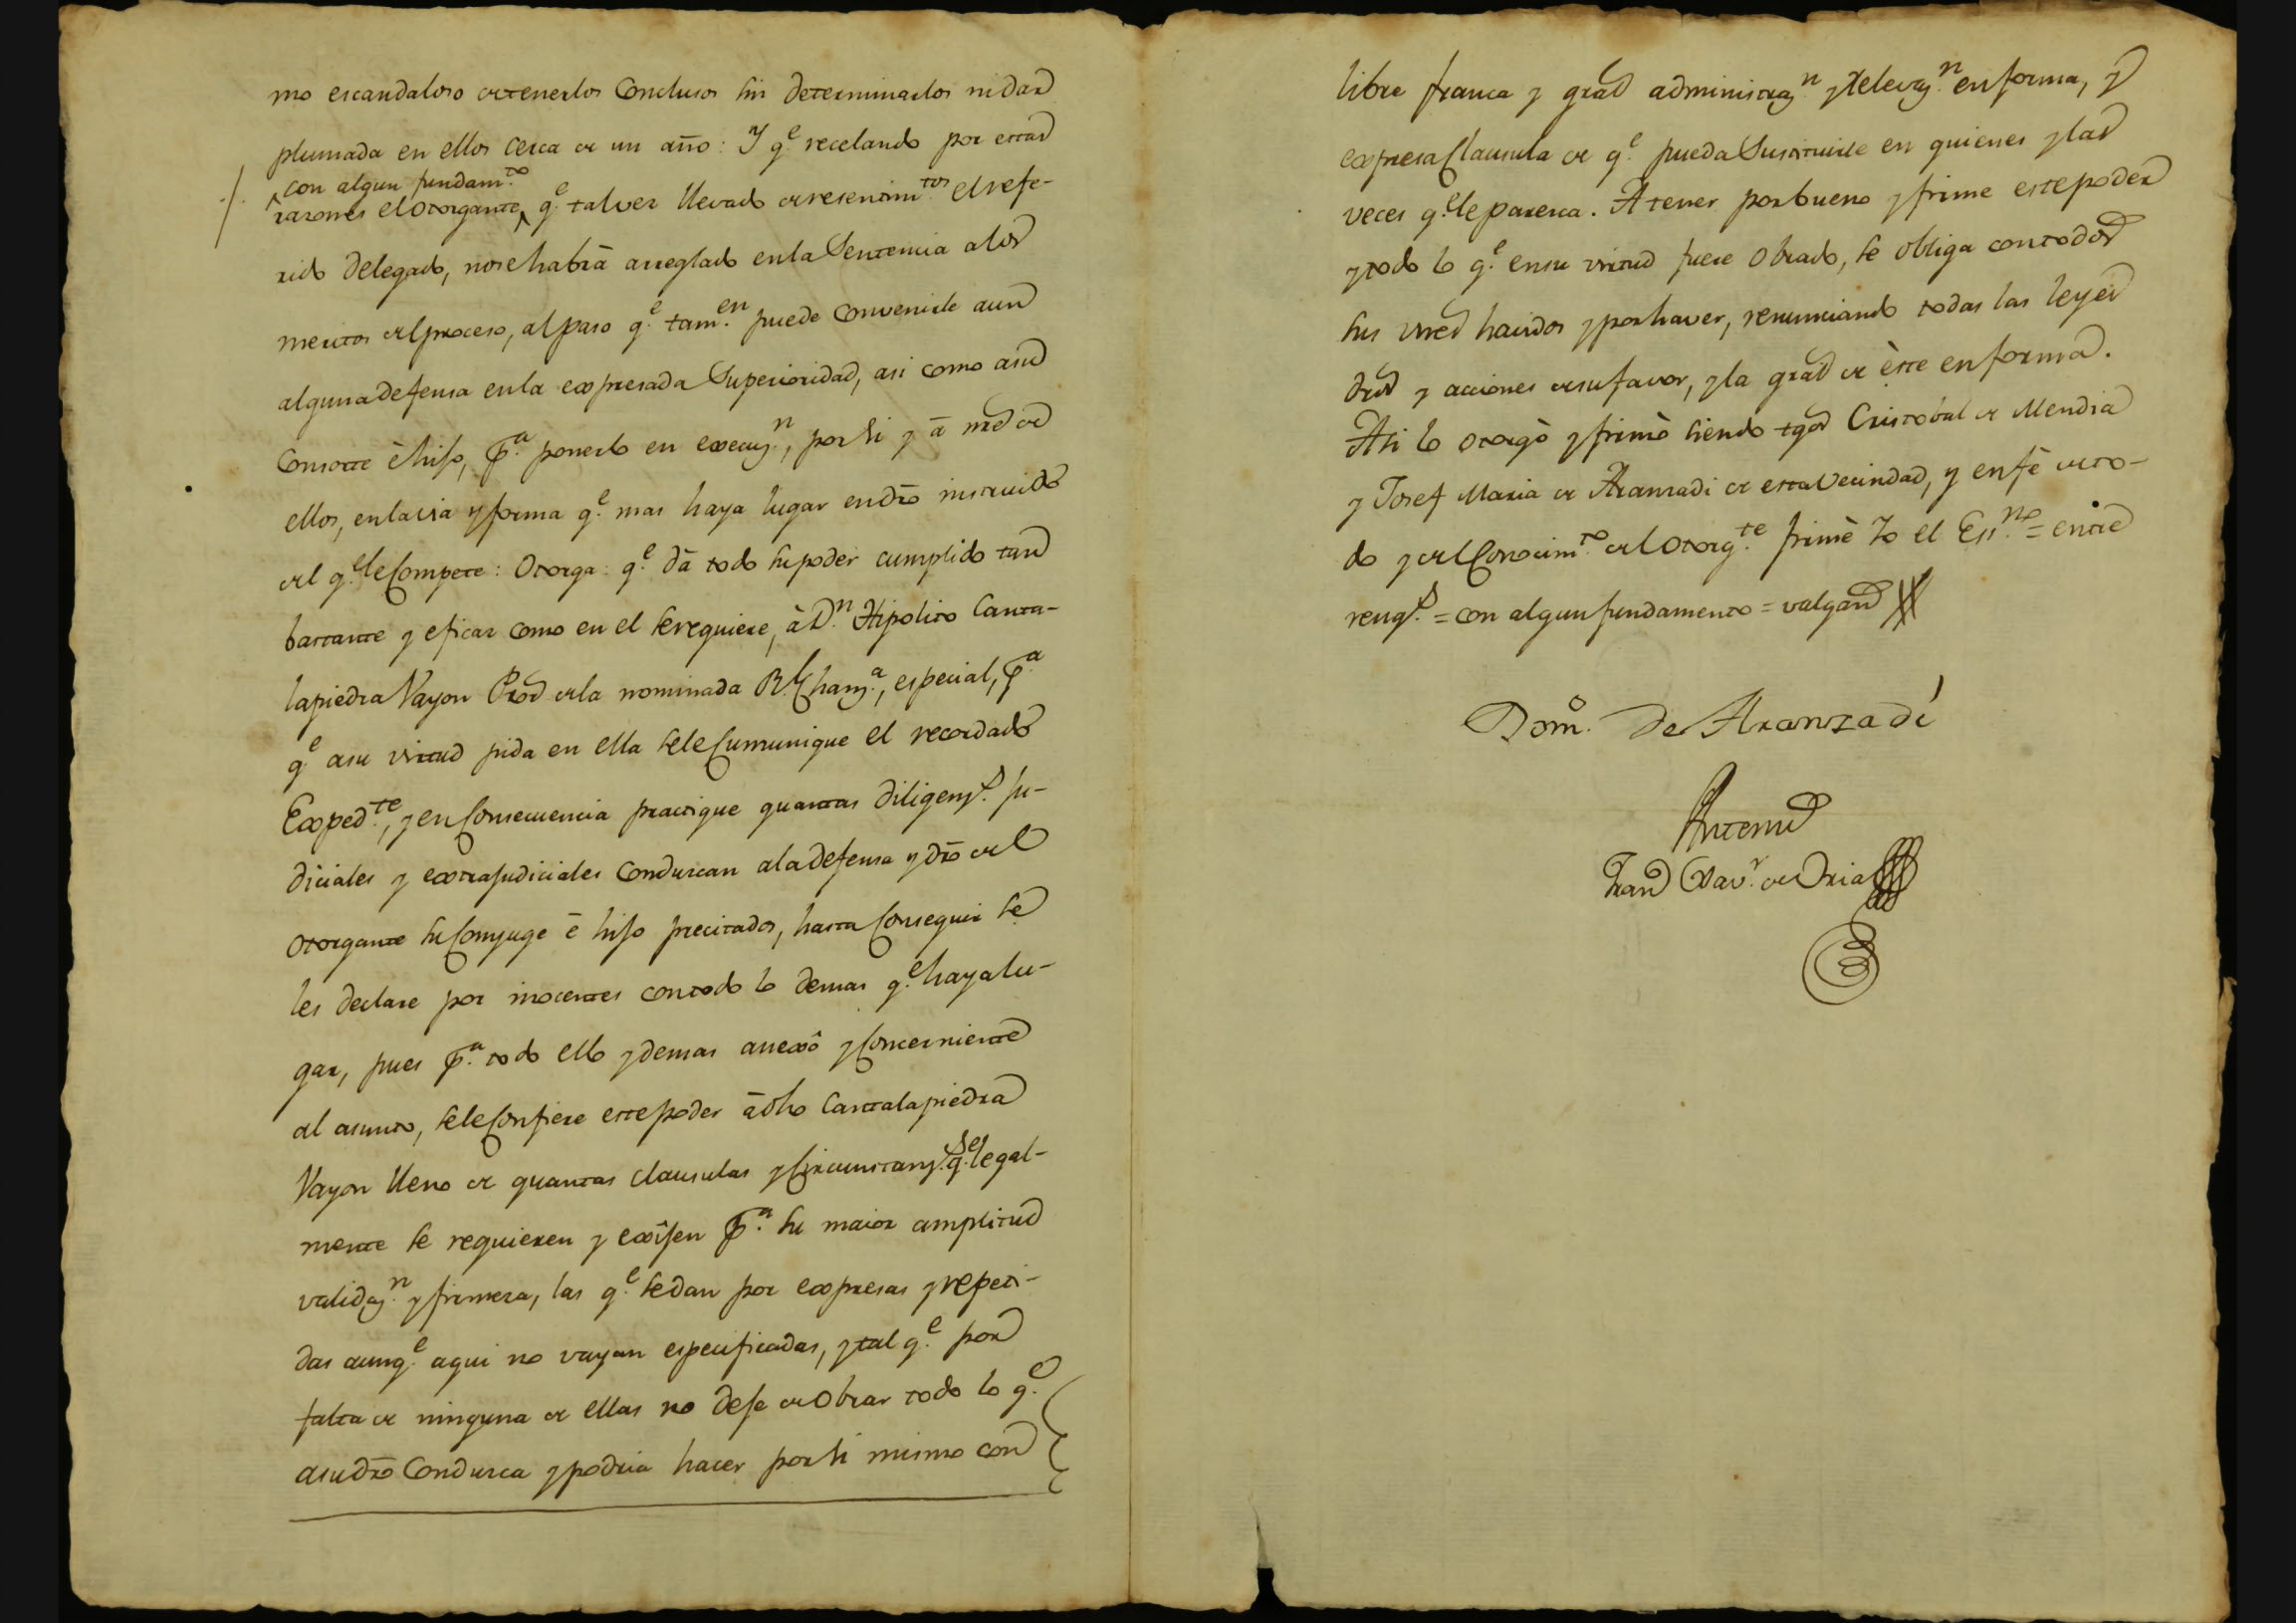 mo escandaloso de tenerlos Conclusos sin determinarlos ni dar
plumada en ellos cerca de un año: Y q.e recelando por estas
con algun fundam.to
razones el otorgante, q.e tal vez llevado de resentim.tos el refe-
rido Delegado, no se habrà arreglado en la Sentencia a los
meritos del proceso, al paso q.e tam.en puede convenirle aun
alguna defensa en la expresada Superioridad, asi como a su
Consorte è hijo, p.a ponerlo en execuz.n, por si y à nre de
ellos, en la via y forma q.e mas haya lugar en dro instruido
del q.e le Compete: Otorga: q.e dà todo su poder cumplido tan
bastante y eficaz como en el se requiere, à D.n Hipolito Canta-
lapiedra Vayon Pror de la nominada R.l Chanz.a, especial, p.a
q.e a su virtud pida en ella se le Cumunique el recordado
Exped.te, y en Consecuencia practique quantas diligenz.s Ju-
diciales y extrajudiciales Conduzcan a la defensa y dro del
otorgante su Conjuge è hijo precitados, hasta Conseguir se
les declare por inocentes con todo lo demas q.e haya lu-
gar, pues p.a todo ello y demas anexô y Concerniente
al asunto, se le Confiere este poder à dho Cantalapiedra
Vayon lleno de quantas clausulas y Circunstanz.s q.e legal-
mente se requieren y exîjen p.a su maior amplitud
validaz.n y firmeza, las q.e se dan por expresas y repeti-
das aunq.e aqui no vayan especificadas, y tal q.e por
falta de ninguna de ellas no deje de Obrar todo lo q.e
a su dro Conduzca y podria hacer por si mismo con
libre franca y gral administraz.n y relevaz.n en forma, y
expresa Clausula de q.e pueda Sustituirle en quienes y las
veces q.e le paresca. A tener por bueno y firme este poder
y todo lo q.e en su virtud fuere Obrado, se obliga con todos
sus vnes havidos y por haver, renunciando todas las leyes
dros y acciones de su favor, y la gral de èste en forma.
Asi lo otorgò y firmò siendo tgos Cristobal de Mendia
y Josef Maria de Aranzadi de esta Vecindad, y en fè de to-
do y del Conocim.to del Otorg.te firmè Yo el Ess.no = entre
reng.s = con algun fundamento = valgan
Dom.o de Aranzadi
Ante mi
Fran.co Xav.r de Oria